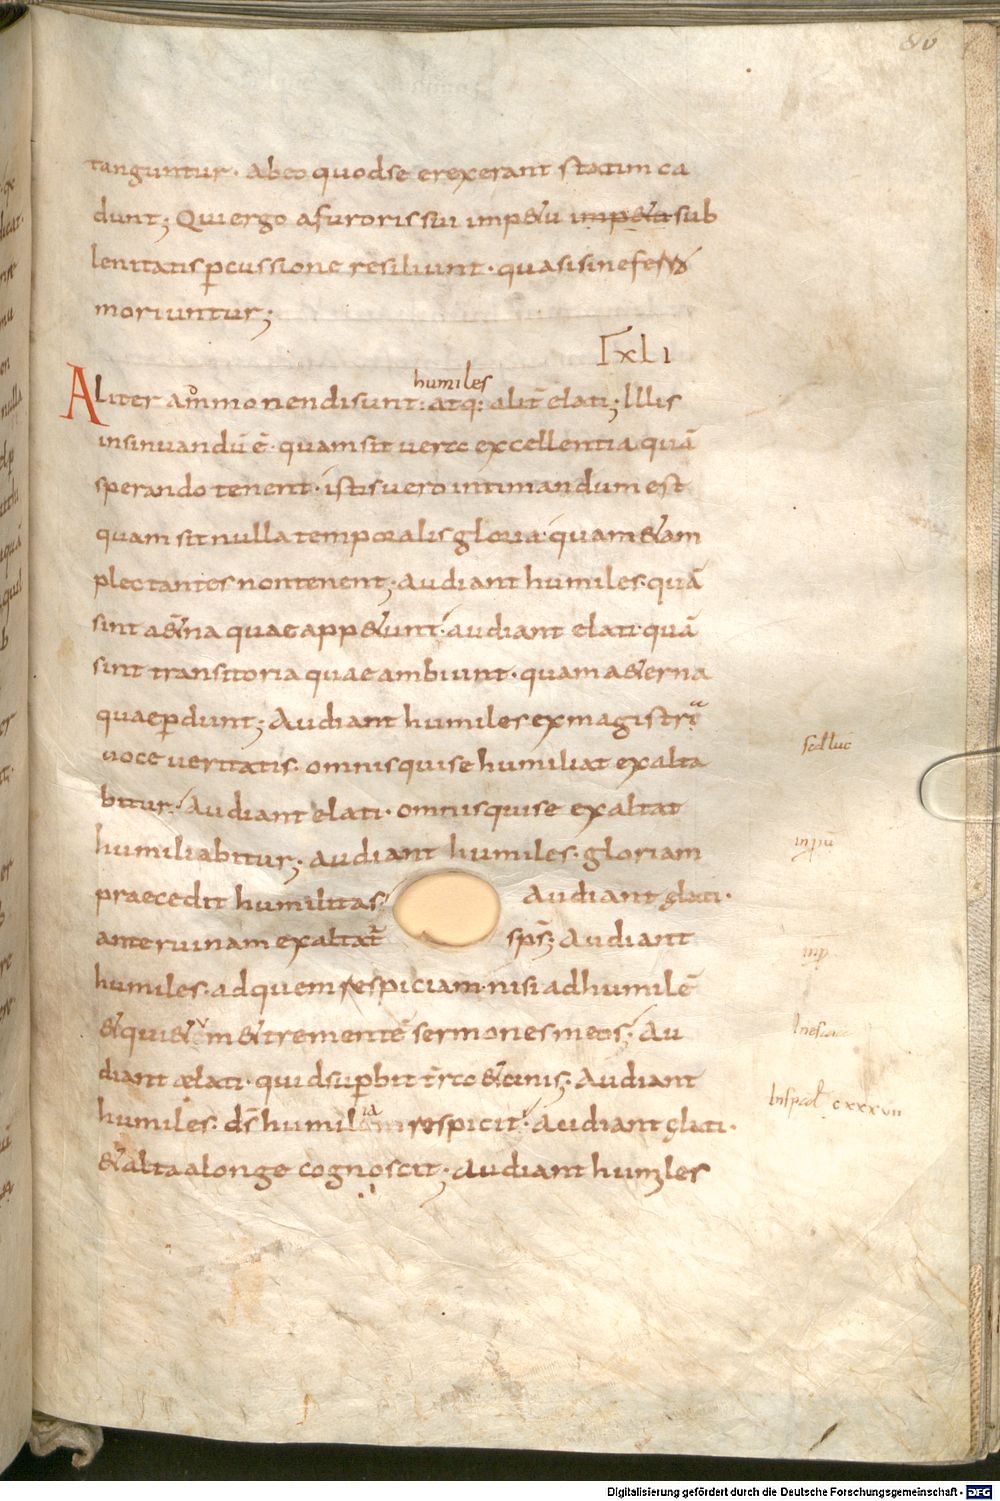 tanguntur. ab eo quod se erexerant statim ca
dunt; Qui ergo a furoris sui imp&u imp&u sub
lenitatis p̄cussione resiliunt. quasi sine ferro
moriuntur;
XLI
humiles
Aliter ammonendi sunt: atq: alit̄ elati; Illis
insinuandū ē. quam sit vere excellentia quā
sperando tenent. istis vero intimandum est
quam sit nulla temporalis gloria. quam & am
plectantes non tenent; Audiant humiles. quā
sint a&̄na quae app&unt. audiant elati. quā
sint transitoria quae ambiunt. quam a&erna
quae p̄dunt; Audiant humiles ex magistra
voce veritatis. omnis qui se humiliat exalta
bitur. Audiant elati. omnis qui se exaltat
humiliabitur; audiant humiles. gloriam
praecedit humilitas. Audiant ęlati.
ante ruinam exaltat̄ sps̄; Audiant
humiles. ad quem respiciam. nisi ad humilē
& qui&um & trementē sermones meos. Au
diant ælati. quid sup̄bit t̄ra & cinis; Audiant
humiles. ds̄ humilia respicit. Audiant ęlati.
& alta a longe cognoscit; Audiant humiles
scd luc̄
in puī
cxxxvii
Digitalisierung gefördert durch die Deutsche Forschungsgemeinschaft - DFG